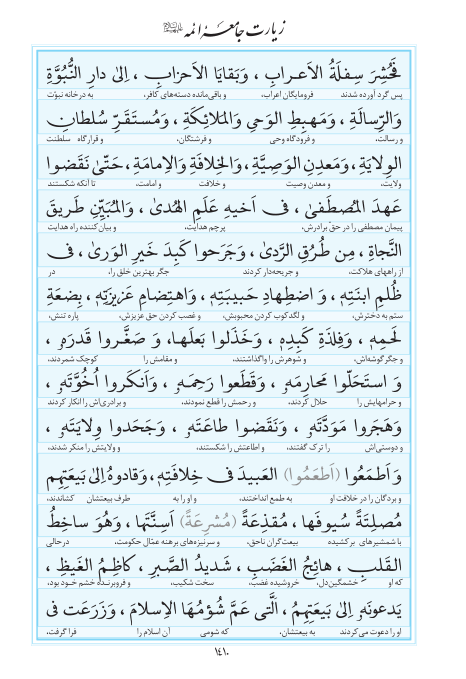 زیارت جامعهٔ ائمه
فَحُشِرَ سِفلَةُ الاَعـرابِ ، وَبَقایَا الاَحزابِ ، اِلیٰ دارِ النُّبُوَّةِ
پس گرد آورده شدند فرومایگان اعراب، و باقی‌مانده دسته‌های کافر، به درخانه نبوّت
وَالرِّسالَةِ ، وَمَهبِطِ الوَحیِ وَالمَلائِکَةِ ، وَمُستَقَرِّ سُلطانِ
و رسالت، و فرودگاه وحی و فرشتگان، و قرارگاه سلطنت
الوِلایَةِ ، وَمَعدِنِ الوَصِیَّةِ ، وَالخِلافَةِ وَالاِمامَةِ ، حَتّیٰ نَقَضوا
ولایت، و معدن وصیت و خلافت و امامت، تا آنکه شکستند
عَهدَ المُصطَفیٰ ، فی اَخیهِ عَلَمِ الهُدیٰ ، وَالمُبَیِّنِ طَریقَ
پیمان مصطفی را در حق برادرش، پرچم هدایت، و بیان کننده راه هدایت
النَّجاةِ ، مِن طُرُقِ الرَّدیٰ ، وَجَرَحوا کَبِدَ خَیرِ الوَریٰ ، فی
از راههای هلاکت، و جریحه‌دار کردند جگر بهترین خلق را، در
ظُلمِ ابنَتِهِ ، وَ اضطِهادِ حَبیبَتِهِ ، وَاهتِضامِ عَزیزَتِهِ ، بِضعَةِ
ستم به دخترش، و لگدکوب کردن محبوبش، و غصب کردن حق عزیزش، پاره تنش،
لَحمِهِ ، وَفِلذَةِ کَبِدِهِ ، وَخَذَلوا بَعلَها، وَ صَغَّروا قَدرَهُ ،
و جگر گوشه‌اش، و شوهرش را واگذاشتند، و مقامش را کوچک شمردند،
وَ استَحَلّوا مَحارِمَهُ ، وَقَطَعوا رَحِمَهُ ، وَاَنکَروا اُخُوَّتَهُ ،
و حرامهایش را حلال کردند، و رحمش را قطع نمودند، و برادری‌اش را انکار کردند
وَهَجَروا مَوَدَّتَهُ ، وَنَقَضوا طاعَتَهُ ، وَجَحَدوا وِلایَتَهُ ،
و دوستی‌اش را ترک گفتند، و اطاعتش را شکستند، و ولایتش را منکر شدند،
وَ اَطمَعُوا (اَطعَمُوا) العَبیدَ فی خِلافَتِهِ، وَقادوهُ اِلیٰ بَیعَتِهِم
و بردگان را در خلافت او به طمع انداختند، و او را به طرف بیعتشان کشاندند،
مُصلِتَةً سُیوفَها ، مُقذِعَةً (مُشرِعَةً) اَسِنَّتَها ، وَهُوَ ساخِطُ
با شمشیرهای برکشیده بیعت‌گران ناحق، و سرنیزه‌های برهنه عمّال حکومت، درحالی
القَلبِ ، هائِجُ الغَضَبِ ، شَدیدُ الصَّبرِ ، کاظِمُ الغَیظِ ،
که او خشمگین‌دل، خروشیده غضب، سخت شکیب، و فروبرنده خشم خود بود،
یَدعونَهُ اِلیٰ بَیعَتِهِمُ ، الَّتی عَمَّ شُؤمُهَا الاِسلامَ ، وَزَرَعَت فی
او را دعوت می‌کردند به بیعتشان، که شومی آن اسلام را فرا گرفت،
١٤١٠